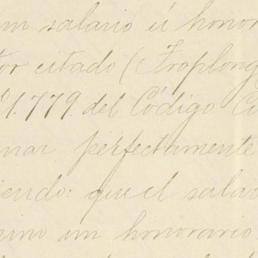 un salario ú honor
tor citado (Troplong
1.779 del Código C
nar perfectamente
iendo: que el salar
ino un honorario